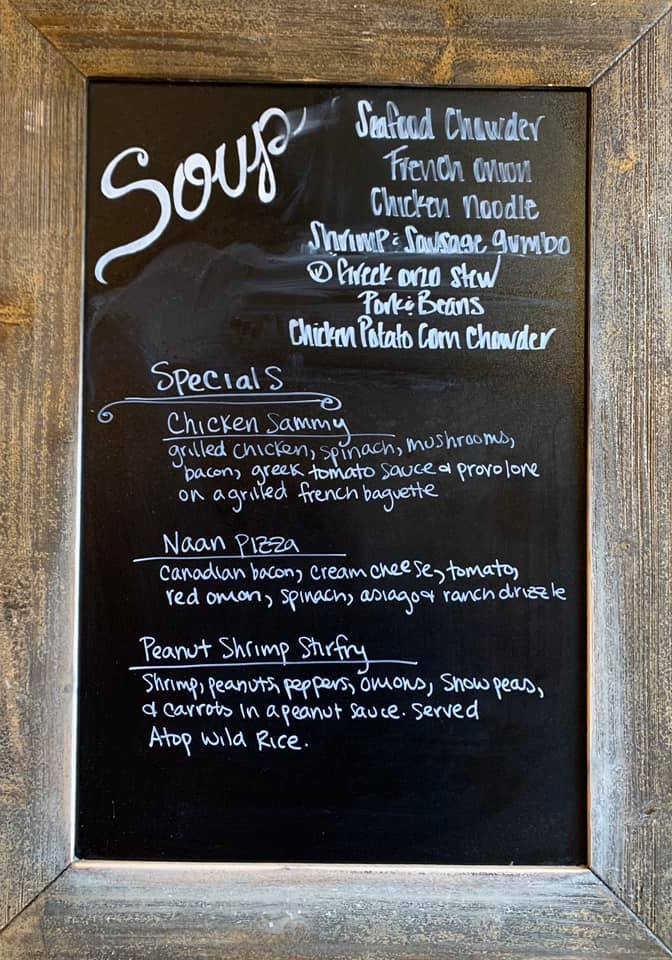 Soup
Seafood Chowder
French onion
Chicken noodle
Shrimp & Sausage gumbo
Ⓥ Greek orzo stew
Pork & Beans
Chicken Potato Corn Chowder
Specials
Chicken Sammy
grilled chicken, spinach, mushrooms,
bacon, greek tomato sauce & provolone
on a grilled french baguette
Naan Pizza
Canadian bacon, cream cheese, tomato,
red onion, spinach, asiago & ranch drizzle
Peanut Shrimp Stirfry
Shrimp, peanuts, peppers, onions, Snow peas,
& carrots in a peanut sauce. Served
Atop Wild Rice.